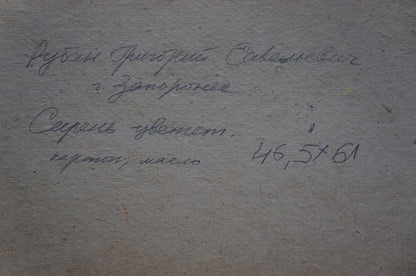 Рубан Григорий Савельевич
г Запорожье
Сирень цветет.
картон, масло 46,5х61